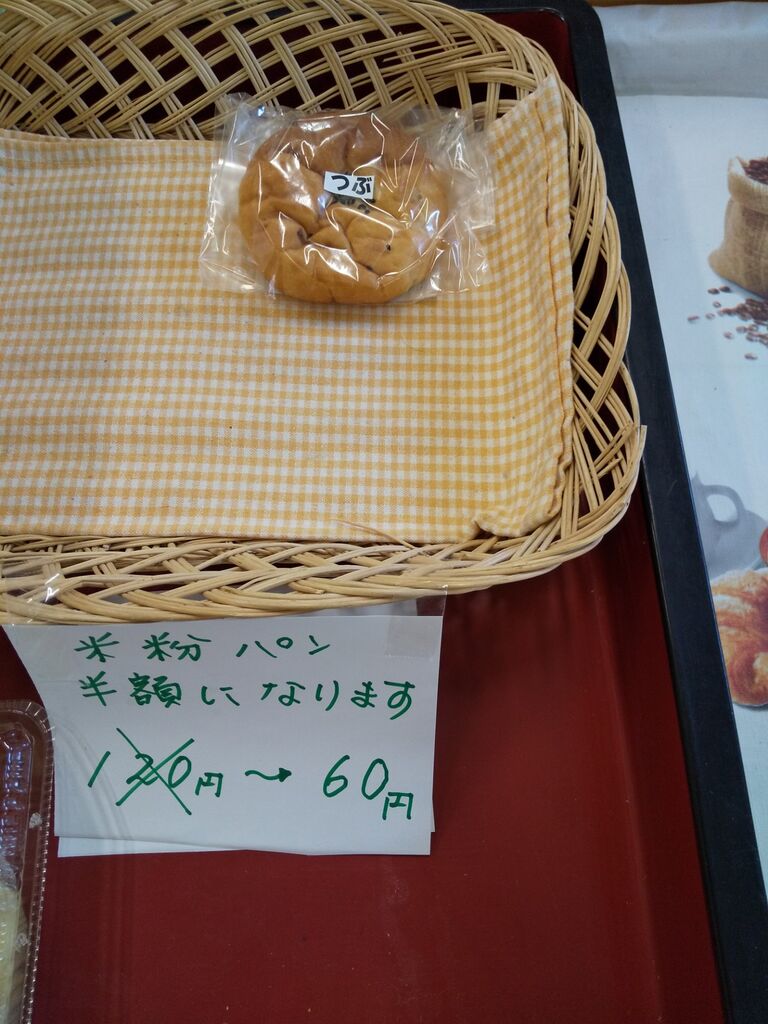 つぶ
米粉パン
半額になります
120円→60円